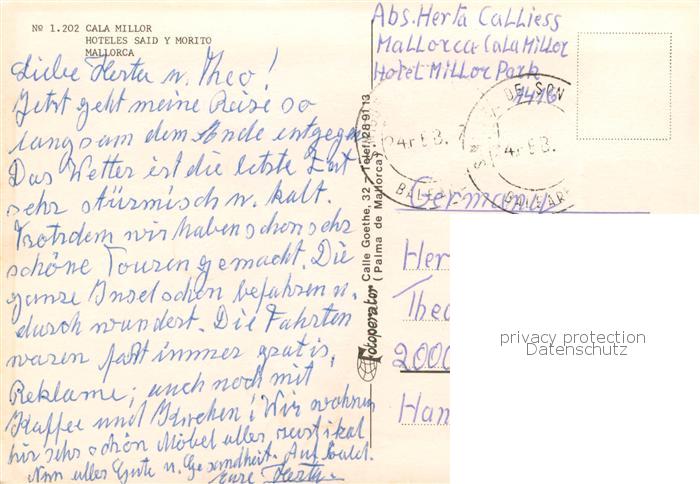 Nº 1.202 CALA MILLOR
HOTELES SAID Y MORITO
MALLORCA
Liebe Herta u. Theo!
Jetzt geht meine Reise so
langsam dem Ende entgegen
Das Wetter ist die letzte Zeit
sehr stürmisch u. kalt.
Trotzdem wir haben schon sehr
schöne Touren gemacht. Die
ganze Insel schon befahren u.
durch wandert. Die Fahrten
waren fast immer gratis,
Reklame; auch noch mit
Kaffee und Kuchen! Wir wohnen
hir sehr schön Möbel alles, rustikal
Nun alles Gute u. Gesundheit. Auf bald.
Eure Herta
Fotoperator Calle Goethe, 32 - Telef. 28 91 13
(Palma de Mallorca)
Abs. Herta Calliess
Mallorca Cala Millor
Hotel Millor Park
1416
DE SON
4 FEB.
4 FEB.
BALEARES
BALEARES
Germany
Her
Theo
2000
Ham
privacy protection
Datenschutz